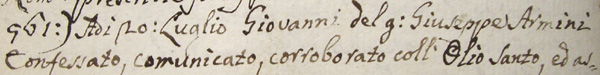 561:) Adi 20: Luglio Giovanni del q: Giuseppe Armini
Confessato, comunicato, corroborato coll' Olio Santo, ed as-